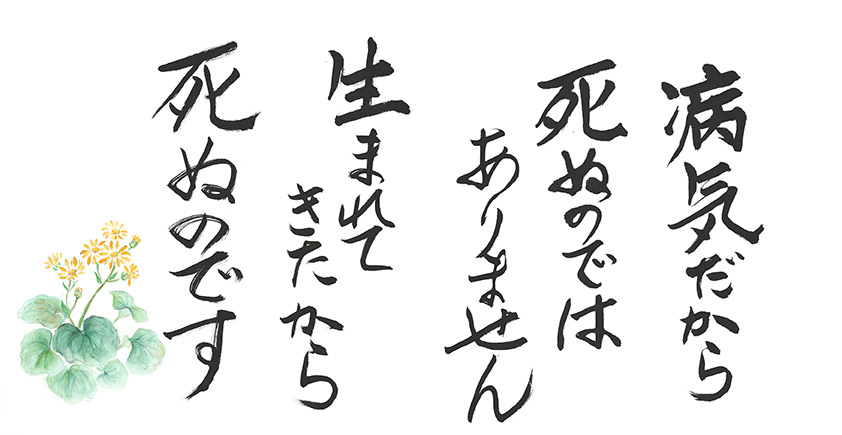 病気だから
死ぬのでは
ありません
生まれて
きたから
死ぬのです